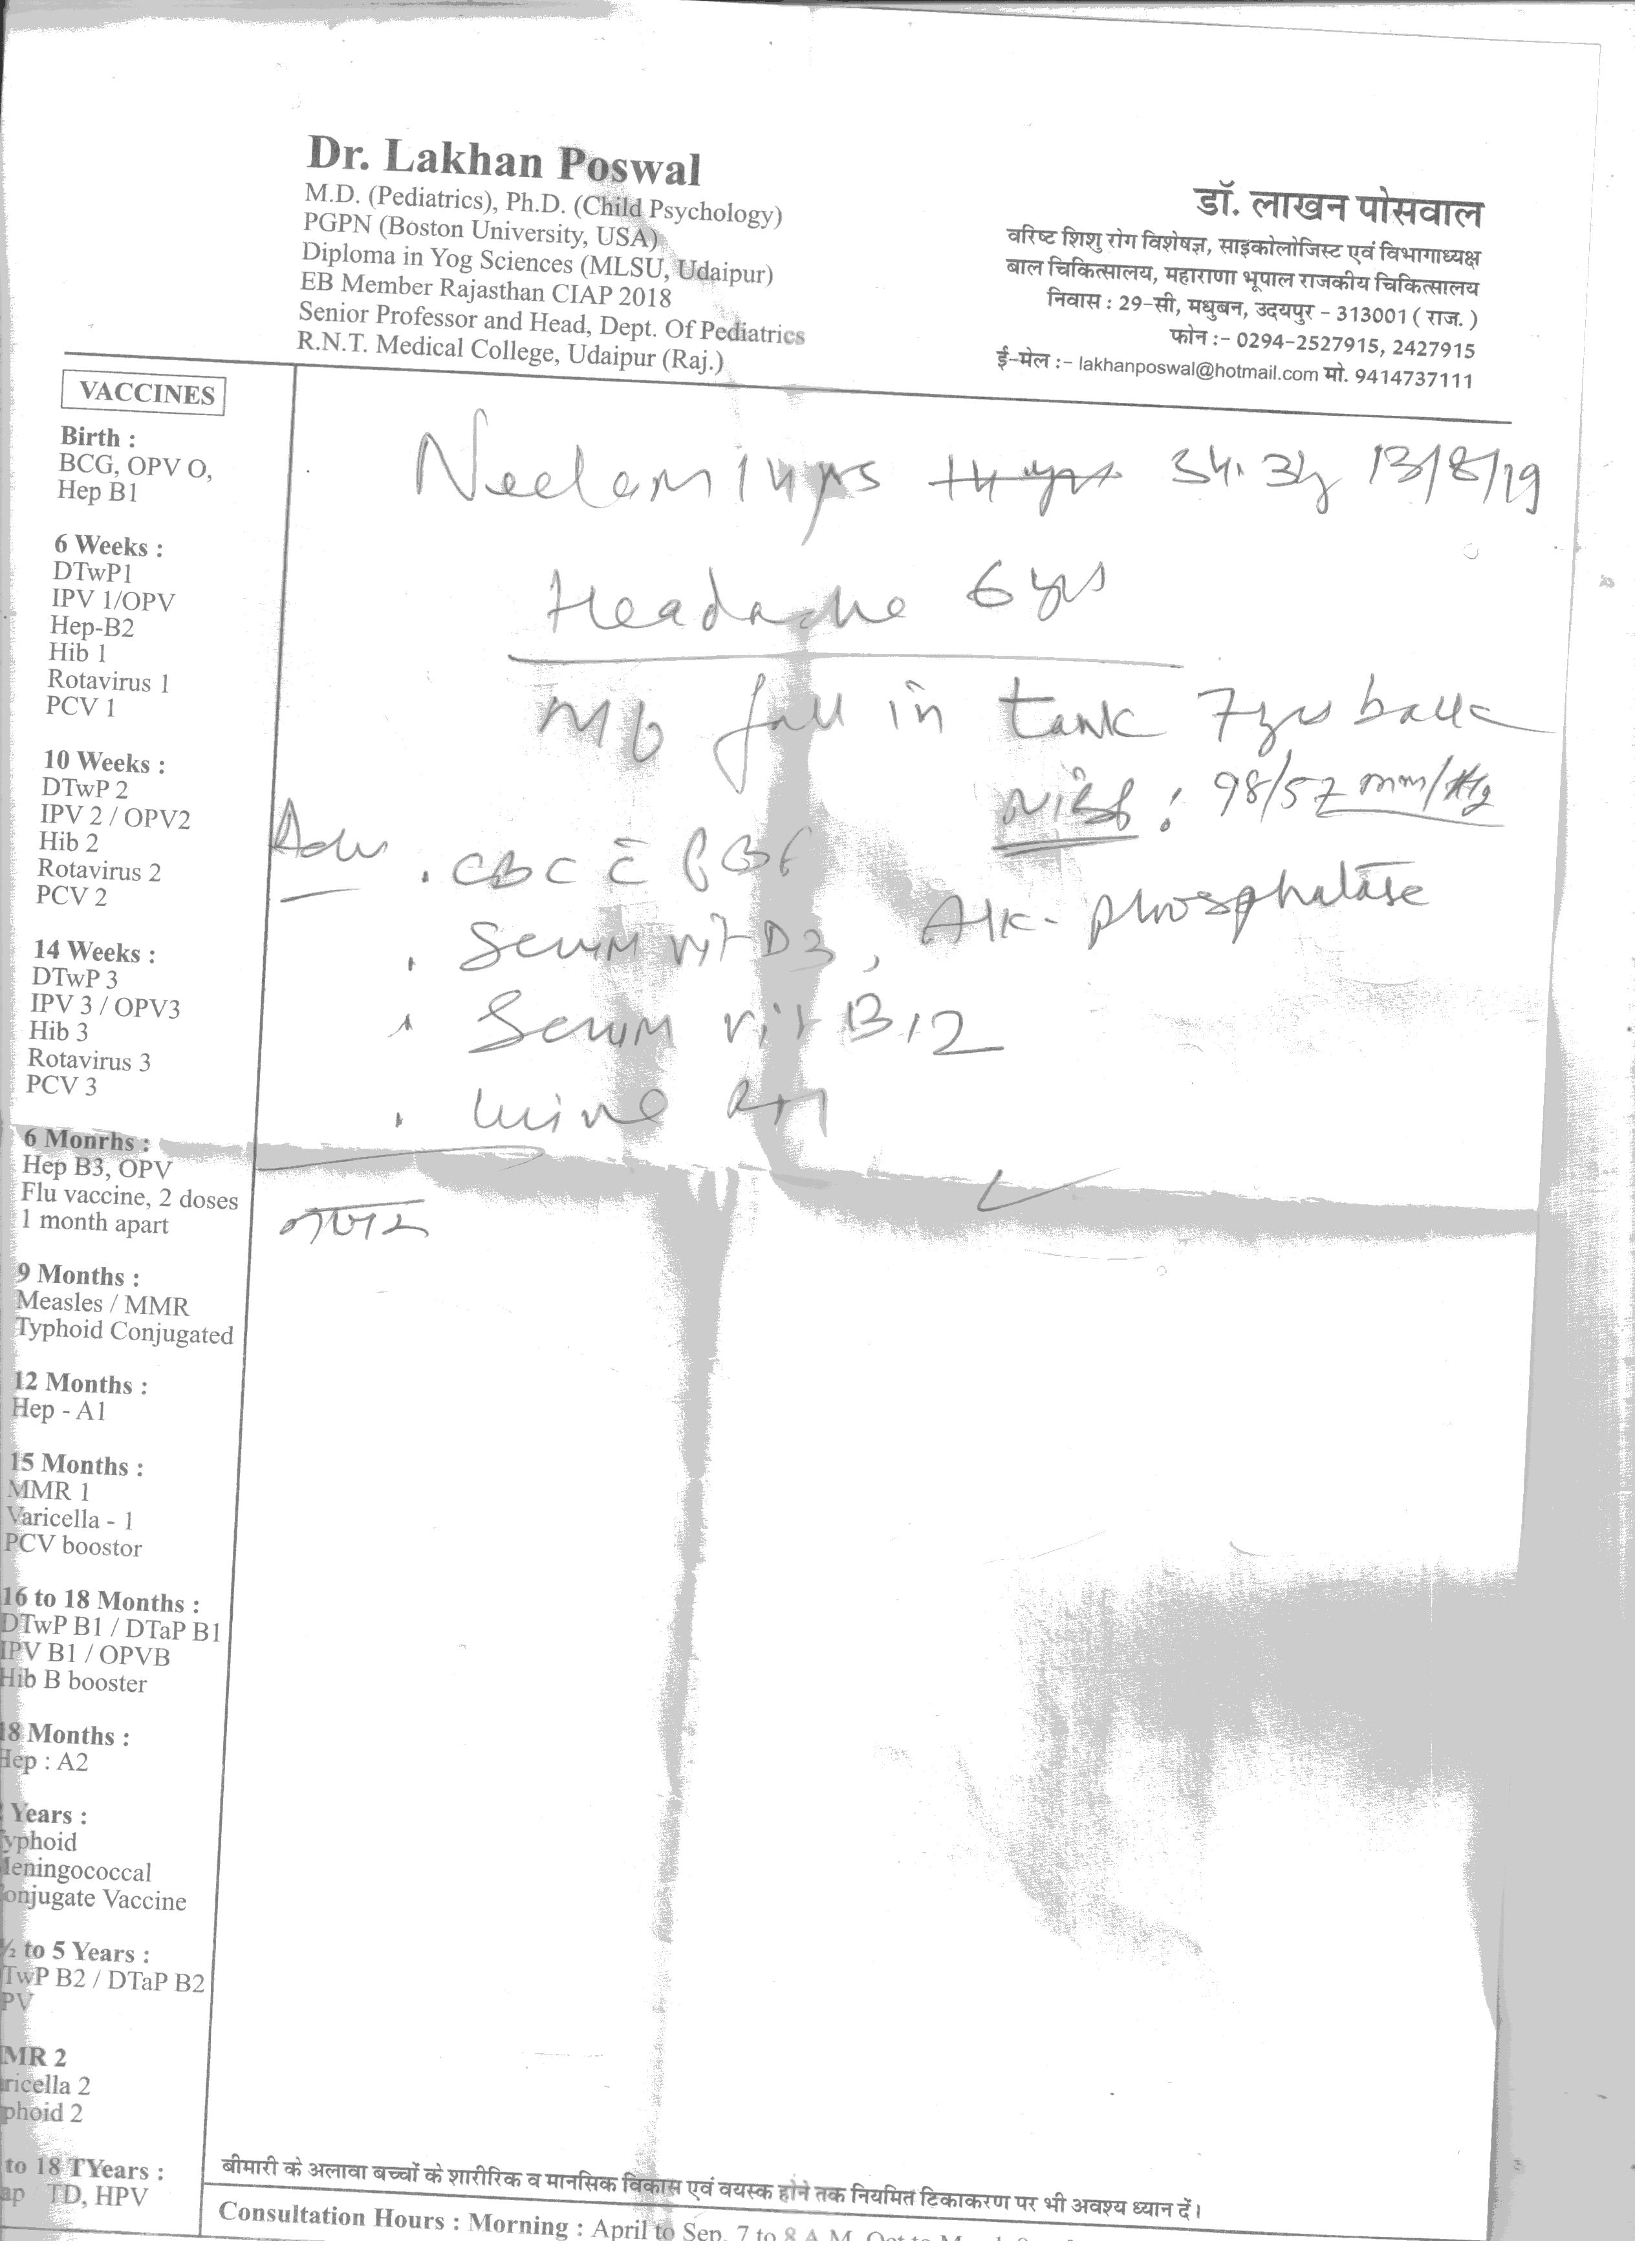 Dr. Lakhan Poswal
M.D. (Pediatrics), Ph.D. (Child Psychology)
PGPN (Boston University, USA)
Diploma in Yog Sciences (MLSU, Udaipur)
EB Member Rajasthan CIAP 2018
Senior Professor and Head, Dept. Of Pediatrics
R.N.T. Medical College, Udaipur (Raj.)
डॉ. लाखन पोसवाल
वरिष्ट शिशु रोग विशेषज्ञ, साइकोलोजिस्ट एवं विभागाध्यक्ष
बाल चिकित्सालय, महाराणा भूपाल राजकीय चिकित्सालय
निवास : 29-सी, मधुबन, उदयपुर - 313001 ( राज. )
फोन :- 0294-2527915, 2427915
ई-मेल :- lakhanposwal@hotmail.com मो. 9414737111
VACCINES
Birth :
BCG, OPV O,
Hep B1
6 Weeks :
DTwP1
IPV 1/OPV
Hep-B2
Hib 1
Rotavirus 1
PCV 1
10 Weeks :
DTwP 2
IPV 2 / OPV2
Hib 2
Rotavirus 2
PCV 2
14 Weeks :
DTwP 3
IPV 3 / OPV3
Hib 3
Rotavirus 3
PCV 3
6 Monrhs :
Hep B3, OPV
Flu vaccine, 2 doses
1 month apart
9 Months :
Measles / MMR
Typhoid Conjugated
12 Months :
Hep - A1
15 Months :
MMR 1
Varicella - 1
PCV boostor
16 to 18 Months :
DTwP B1 / DTaP B1
IPV B1 / OPVB
Hib B booster
18 Months :
Hep : A2
Years :
yphoid
Meningococcal
onjugate Vaccine
½ to 5 Years :
TwP B2 / DTaP B2
PV
MR 2
ricella 2
phoid 2
to 18 TYears :
ap TD, HPV
Neelam 14yrs 14 yrs 34.3kg 13/8/19
Headache 6 yrs
fall in tank 7yrs back
NIBP : 98/57 mm/Hg
Adv . CBC c̄ PBF
. Serum vit D3, Alk-phosphatase
. Serum vit B12
. Urine R+M
बीमारी के अलावा बच्चों के शारीरिक व मानसिक विकास एवं वयस्क होने तक नियमित टिकाकरण पर भी अवश्य ध्यान दें।
Consultation Hours : Morning : April to Sep. 7 to 8 A.M.